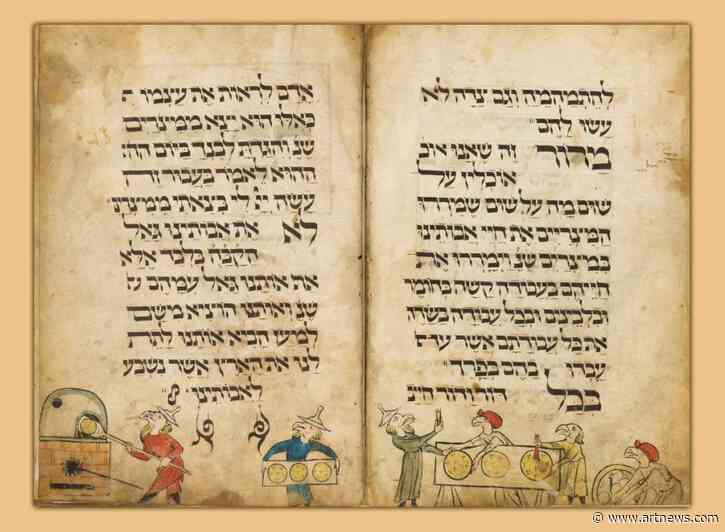 להתמהמה וגם צידה לא
עשו להם
מרור זה שאנו אוכ
אוכלין על
שום מה על שום שמררו
המצריים את חיי אבותינו
במצרים שנ' וימררו את
חייהם בעבודה קשה בחומר
ובלבנים ובכל עבודה בשדה
את כל עבודתם אשר
עבדו בהם בפרך
בכל דור ודור חייב
אדם לראות את עצמו
כאלו הוא יצא ממצרים
שנ' והגדת לבנך ביום
ההוא לאמר בעבור זה
עשה יי לי בצאתי ממצרים
לא את אבותינו גאל
הקבה בלבד אלא
אותנו גאל עמהם
שנ' ואותנו הוציא משם
למען הביא אותנו לתת
לנו את הארץ אשר נשבע
לאבותינו
© www.artnews.com